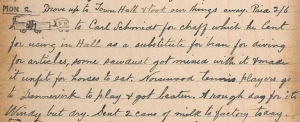 MON 2. Drove up to Town Hall & took our things away. Paid 2/6
to Carl Schmidt for chaff which he lent
for using in Hall as a substitute for bran for diving
for articles, some sawdust got mixed with it & made
it unfit for horses to eat. Norsewood Tennis players go
to Dannevirk to play & got beaten. A rough day for it
Windy but dry. Sent 2 cans of milk to factory to day